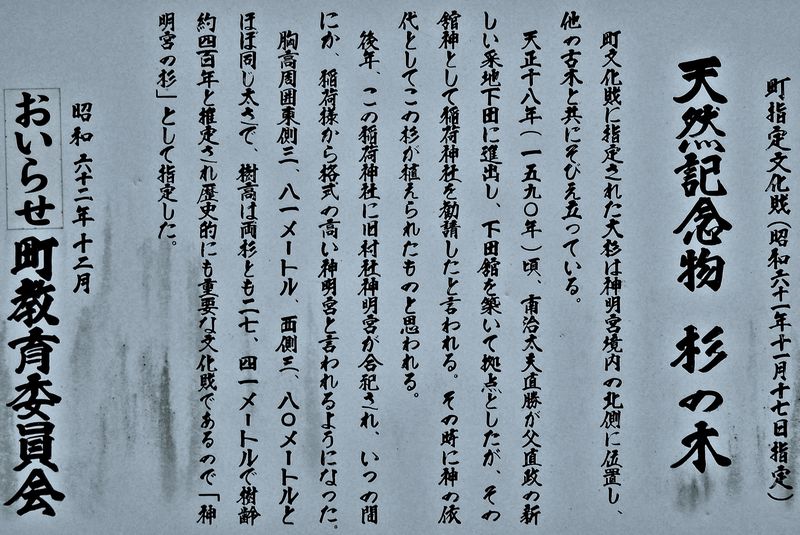 町指定文化財(昭和六十一年十一月十七日指定)
天然記念物 杉の木
町文化財に指定された大杉は神明宮境内の北側に位置し、
他の古木と共にそびえ立っている。
天正十八年(一五九〇年)頃、甫治太夫直勝が父直政の新
しい采地下田に進出し、下田舘を築いて拠点としたが、その
舘神として稲荷神社を勧請したと言われる。その時に神の依
代としてこの杉が植えられたものと思われる。
後年、この稲荷神社に旧村社神明宮が合祀され、いつの間
にか、稲荷様から格式の高い神明宮と言われるようになった。
胸高周囲東側三、八一メートル、西側三、八〇メートルと
ほぼ同じ太さで、樹高は両杉とも二七、四一メートルで樹齢
約四百年と推定され歴史的にも重要な文化財であるので「神
明宮の杉」として指定した。
昭和六十二年十二月
おいらせ町教育委員会